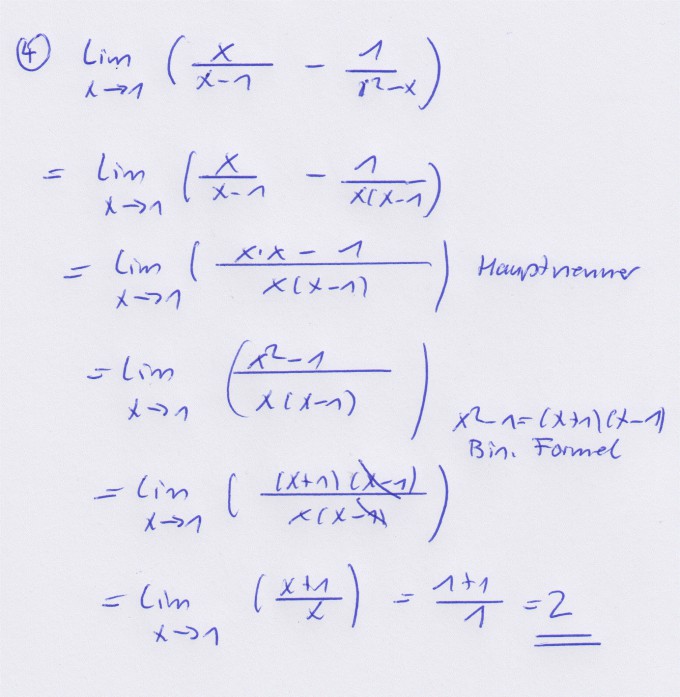 ④ lim x→1 ( x/(x-1) - 1/(x²-x) )
= lim x→1 ( x/(x-1) - 1/(x(x-1)) )
= lim x→1 ( (x·x - 1)/(x(x-1)) ) Hauptnenner
= lim x→1 ( (x²-1)/(x(x-1)) )
x²-1=(x+1)(x-1)
Bin. Formel
= lim x→1 ( (x+1)(x-1)/(x(x-1)) )
= lim x→1 ( (x+1)/x ) = (1+1)/1 = 2